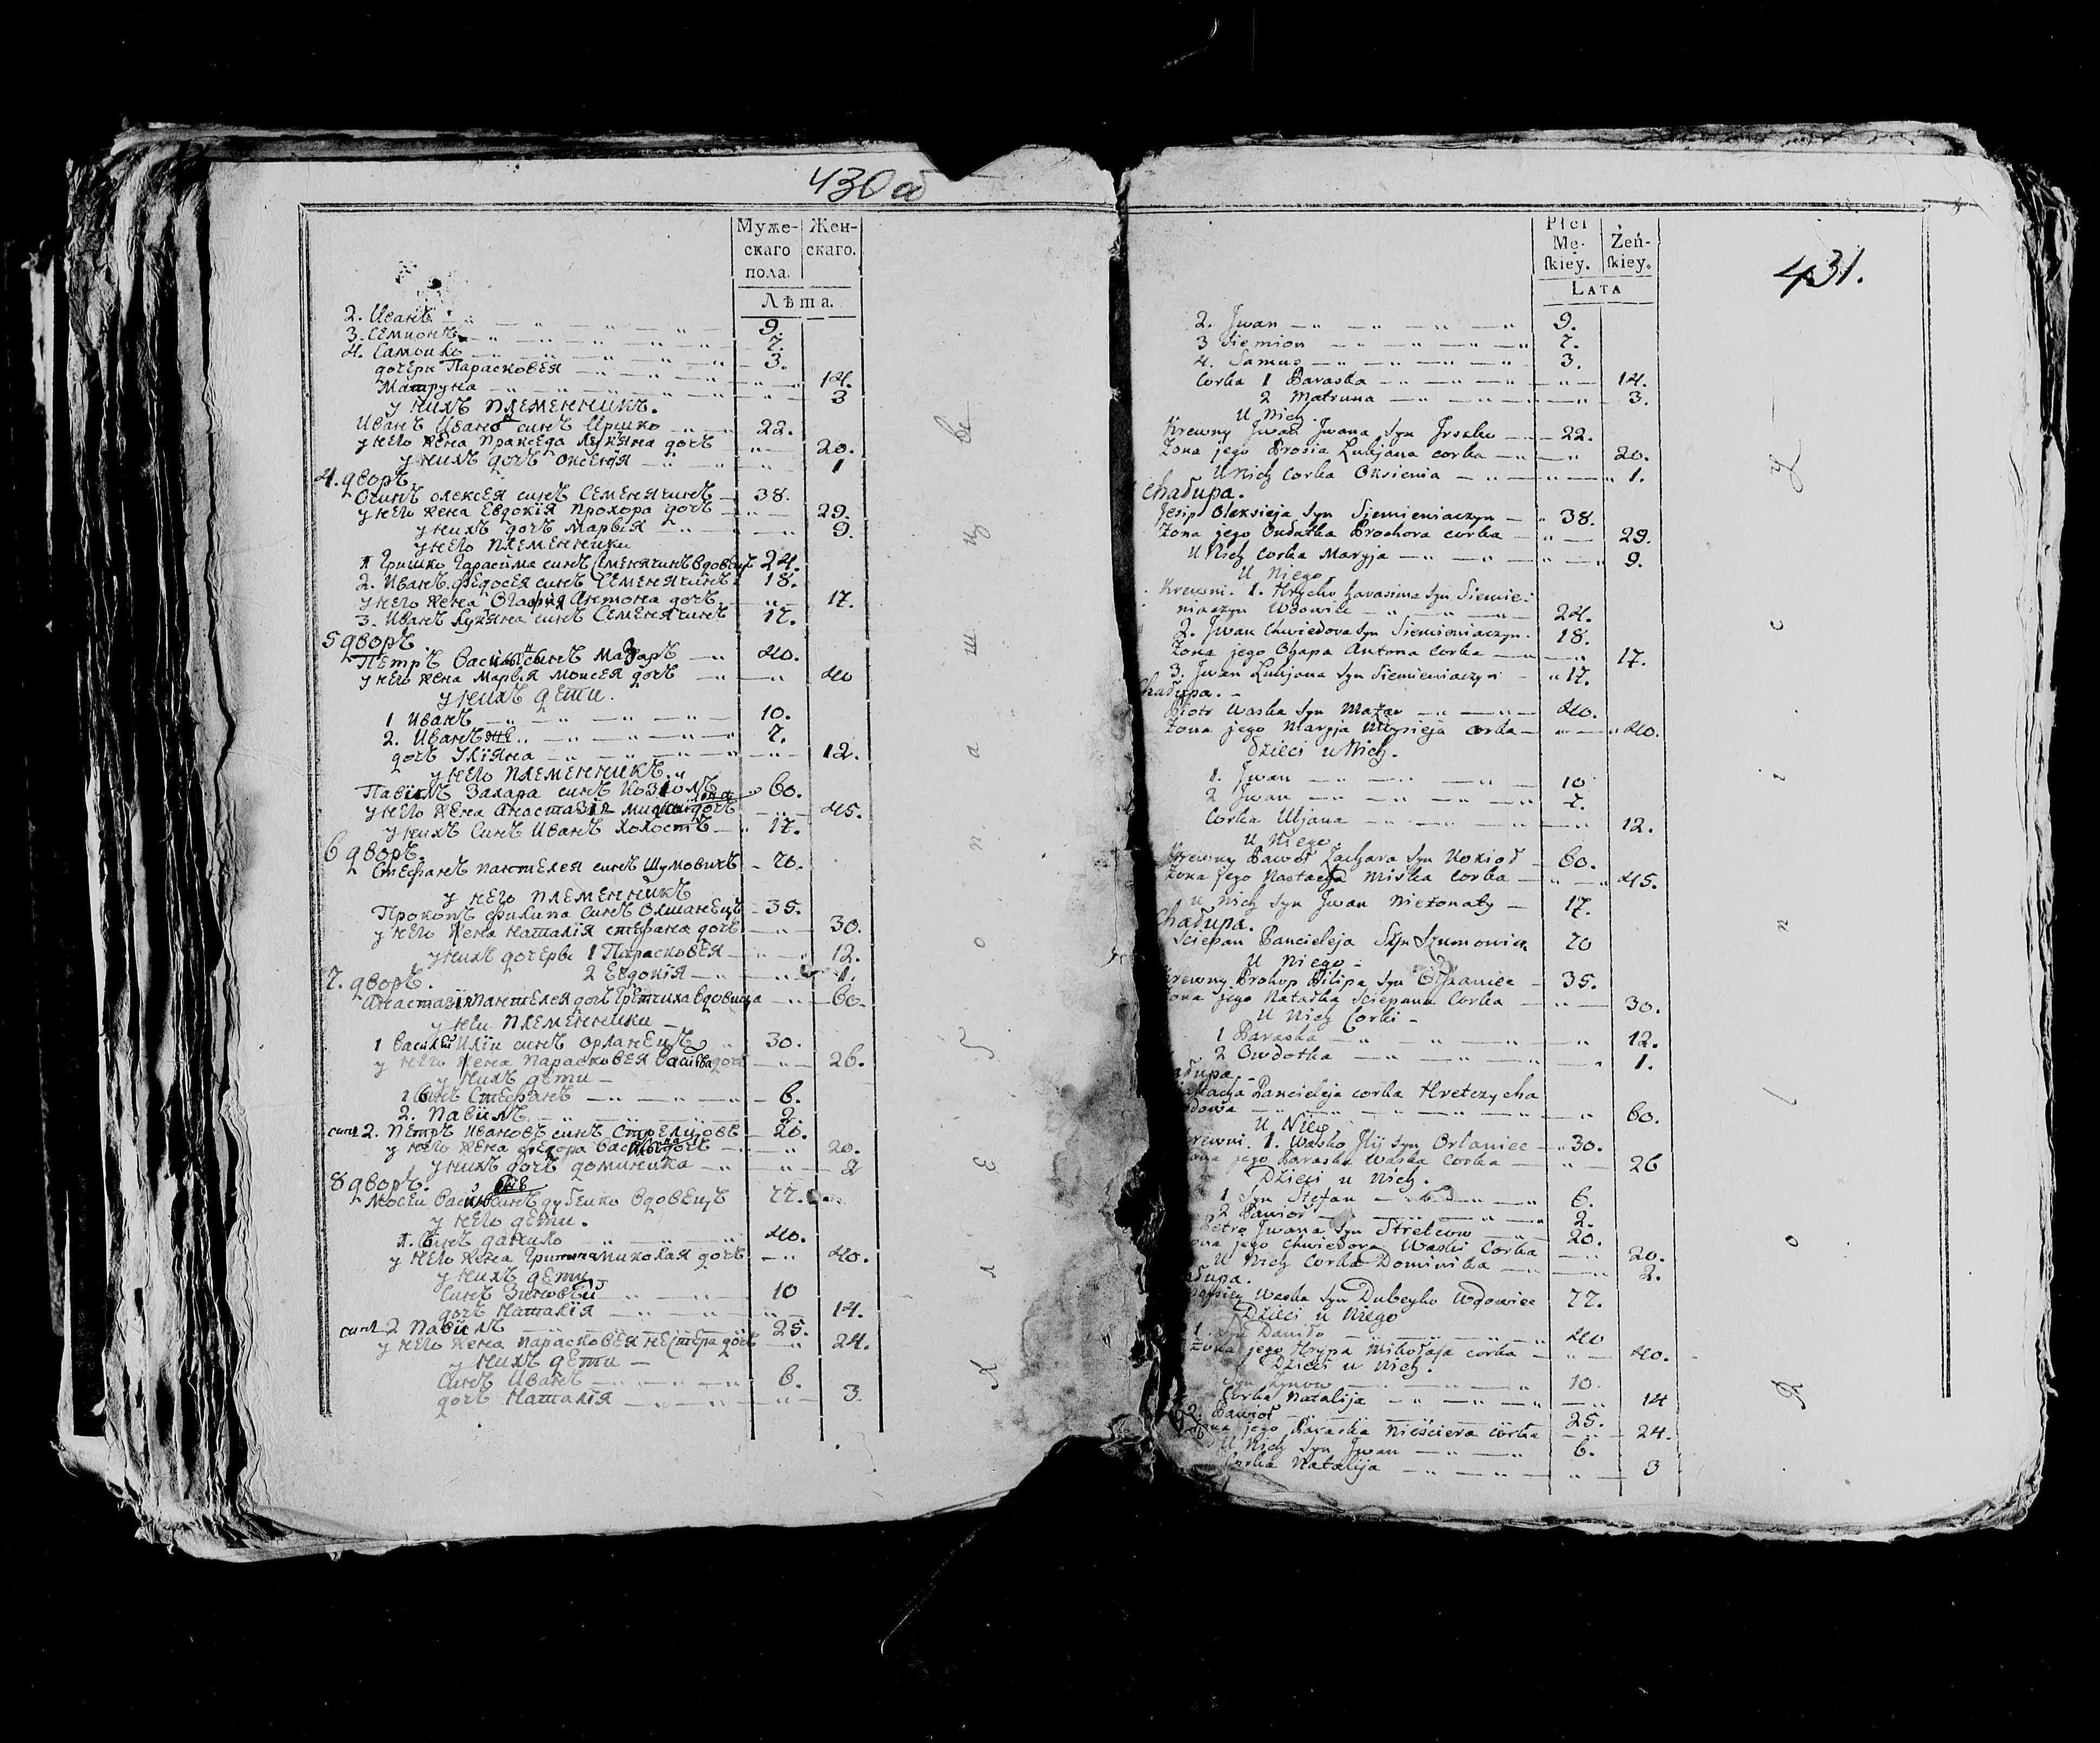 430 об
Муже-скаго пола. Жен-скаго.
Лѣта.
2. Иванъ 9.
3. Семионъ 7.
4. Самойло 3.
дочери Парасковея 14.
Матруна 3
у нихъ племенникъ.
Иванъ Иванов синъ Иршко 22.
у него жена Пракседа Лукяна дочъ 20.
у нихъ дочъ Оксенія 1
4. дворъ
Осипъ Олексея синъ Семенячинъ 38.
у него жена Евдокія Прохора дочъ 29.
у нихъ дочъ Марыя 9.
у него племенники
1 Гришко Гарасима синъ Семенячинъ вдовецъ 24.
2. Иванъ Федосея синъ Семенячинъ 18.
у него жена Огафия Антона дочъ 17.
3. Иванъ Лукяна синъ Семенячинъ 17.
5 дворъ
Петръ Василъ синъ Мазаръ 40.
у него жена Марыя Моисея дочъ 40
у нихъ дети.
1 Иванъ 10.
2. Иванъ же 7.
дочъ Уліяна 12.
у него племенникъ
Павилъ Захара синъ Козіолъ 60.
у него жена Анастазія дочъ 45.
у нихъ синъ Иванъ холостъ 17.
6 дворъ.
Стефанъ Пантелея синъ Шумовичъ 70.
у него племенникъ
Прокопъ Филипа синъ Олшанецъ 35.
у него жена Наталія Стефана дочъ 30.
у нихъ дочерве 1 Парасковея 12.
2 Евдокія 1.
7. дворъ.
Анастазія Пантелея дочъ Гретчиха вдовица 60.
у неи племенники
1 Василий Илїи синъ Орланецъ 30.
у него жена Парасковея дочъ 26.
у нихъ дети
1 синъ Стефанъ 6.
2. Павилъ 2.
2. Петръ Ивановъ синъ Стрелцовъ 20.
у него жена Федора дочъ 20.
у нихъ дочъ Доминика 2
8 дворъ.
Мосеи синъ Дубеико вдовецъ 77.
у него дети.
1. синъ Данило 40.
у него жена Миколая дочъ 40.
у нихъ дети
синъ Зиновѣй 10
дочъ Наталія 14.
синъ 2 Павилъ 25.
у него жена Парасковея Нестера дочъ 24.
у нихъ дети
синъ Иванъ 6.
дочъ Наталія 3.
431.
Płci Mę-skiey. Żeń-skiey.
Lata
2. Jwan 9.
3 Siemion 7.
4. Samus 3.
Corka 1 Paraska 14.
2 Matruna 3.
U Nich
Krewny Jwan Jwana Syn Jrszko 22.
Zona jego Prosia Lukjana corka 20.
U Nich Corka Oksienia 1.
Chałupa.
Jesip Oleksieja Syn Siemieniaczyn 38.
Zona jego Ondatka Prochora corka 29.
U Nich corka Maryja 9.
U Niego
Krewni. 1. Hryćko Harasima Syn Siemie-
niaczyn Wdowiec 24.
2. Jwan Chwiedora Syn Siemieniaczyn. 18.
Zona jego Ohapa Antona Corka 17.
3. Jwan Lukjana Syn Siemieniaczyn 17.
Chałupa.
Piotr Waska Syn Mazar 40.
Zona jego Maryja Moysieja corka 40.
Dzieci u Nich.
1. Jwan 10
2 Jwan 7.
Corka Uljana 12.
U Niego
Krewny Paweł Zachara Syn Kozioł 60.
Zona jego Nastazja Miska Corka 45.
U Nich Syn Jwan Nieżonaty 17.
Chałupa.
Sciepan Pancieleja Syn Szumowicz 70
U Niego
Krewny Prokop Filipa Syn Olszaniec 35.
Zona jego Natałka Sciepana Corka 30.
U Nich Corki
1 Paraska 12.
2 Owdotka 1.
Pancieleja corka Hretczycha
60.
U Niey
Krewni. 1. Wasko Jlij Syn Orlaniec 30.
Zona jego Paraska Waska Corka 26
Dzieci u Nich.
1 Syn Stefan 6.
2 Pawioł 2.
Petro Jwana Syn Strelcow 20.
jego Chwiedora Waski Corka 20.
U Nich Corka Dominika 2.
Waska Syn Dubeyko Wdowiec 77.
Dzieci u Niego
1. Syn Daniło 40
Zona jego Hrypa Mikołaja corka 40.
Dzieci u Nich.
Syn Zynow 10.
Corka Natalija 14
2. Pawioł 25.
jego Paraska Nieściera corka 24.
U Nich Syn Jwan 6.
Corka Natalija 3